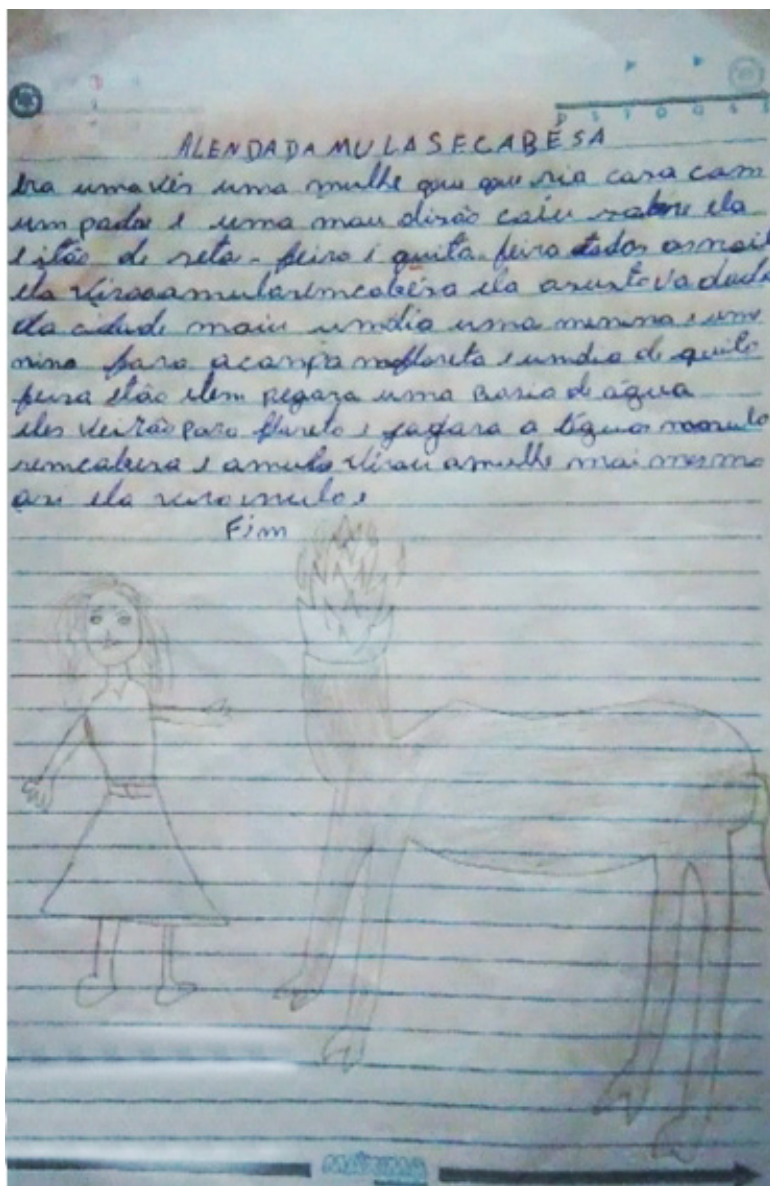 D S T Q Q S S
A LENDA DA MULA SE CABESA
Era uma vês uma mulhe que que ria casa cam
um padre e uma mau disão caiu sobre ela
e itão de seta-feira i quita-feira todos as noit
ela viraaamulasemcabesa ela asustava
da cidade mais umdia uma menina e um
nino para acampa nafloreta e umdia de quita
feira etão eles pegara uma basia de água
eles veirão para floreta e jagara a água namula
semcabesa e amula virou amulhe mai mesmo
asi ela
Fim
MÁXIMA